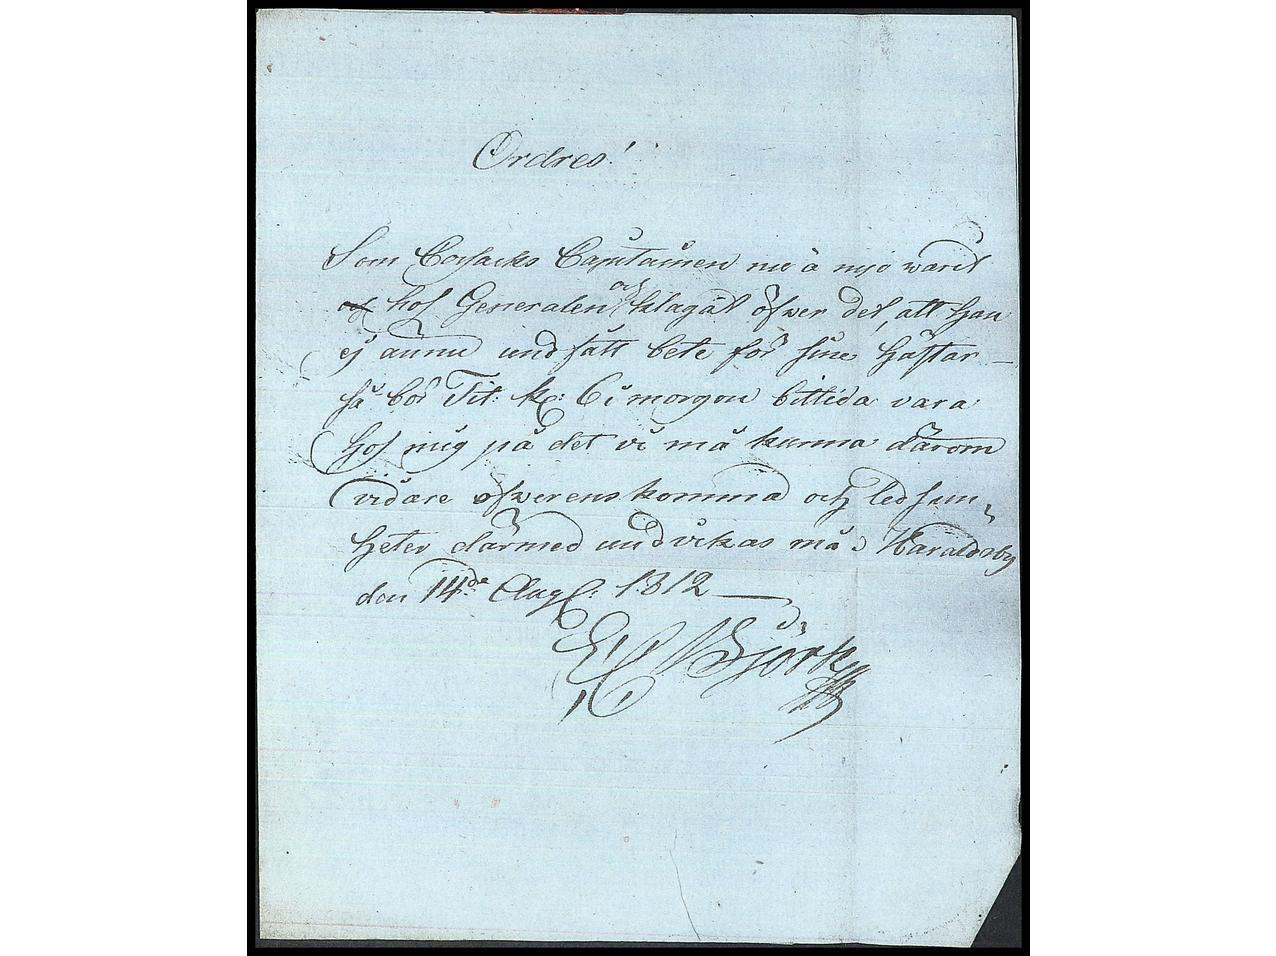 Ordres!
Som Cossacks Capitainen nu å nyo warit
hos Generalen och klagat öfwer det, att han
ej ännu undfått bete för sine hästar
så bör Tit: K: C i morgon bittida vara
hos mig på det vi må kunna därom
vidare öfwerenskomma och ledsam-
heter därmed undvikas må. Haraldsby
den 14de Aug: 1812
E C Björk